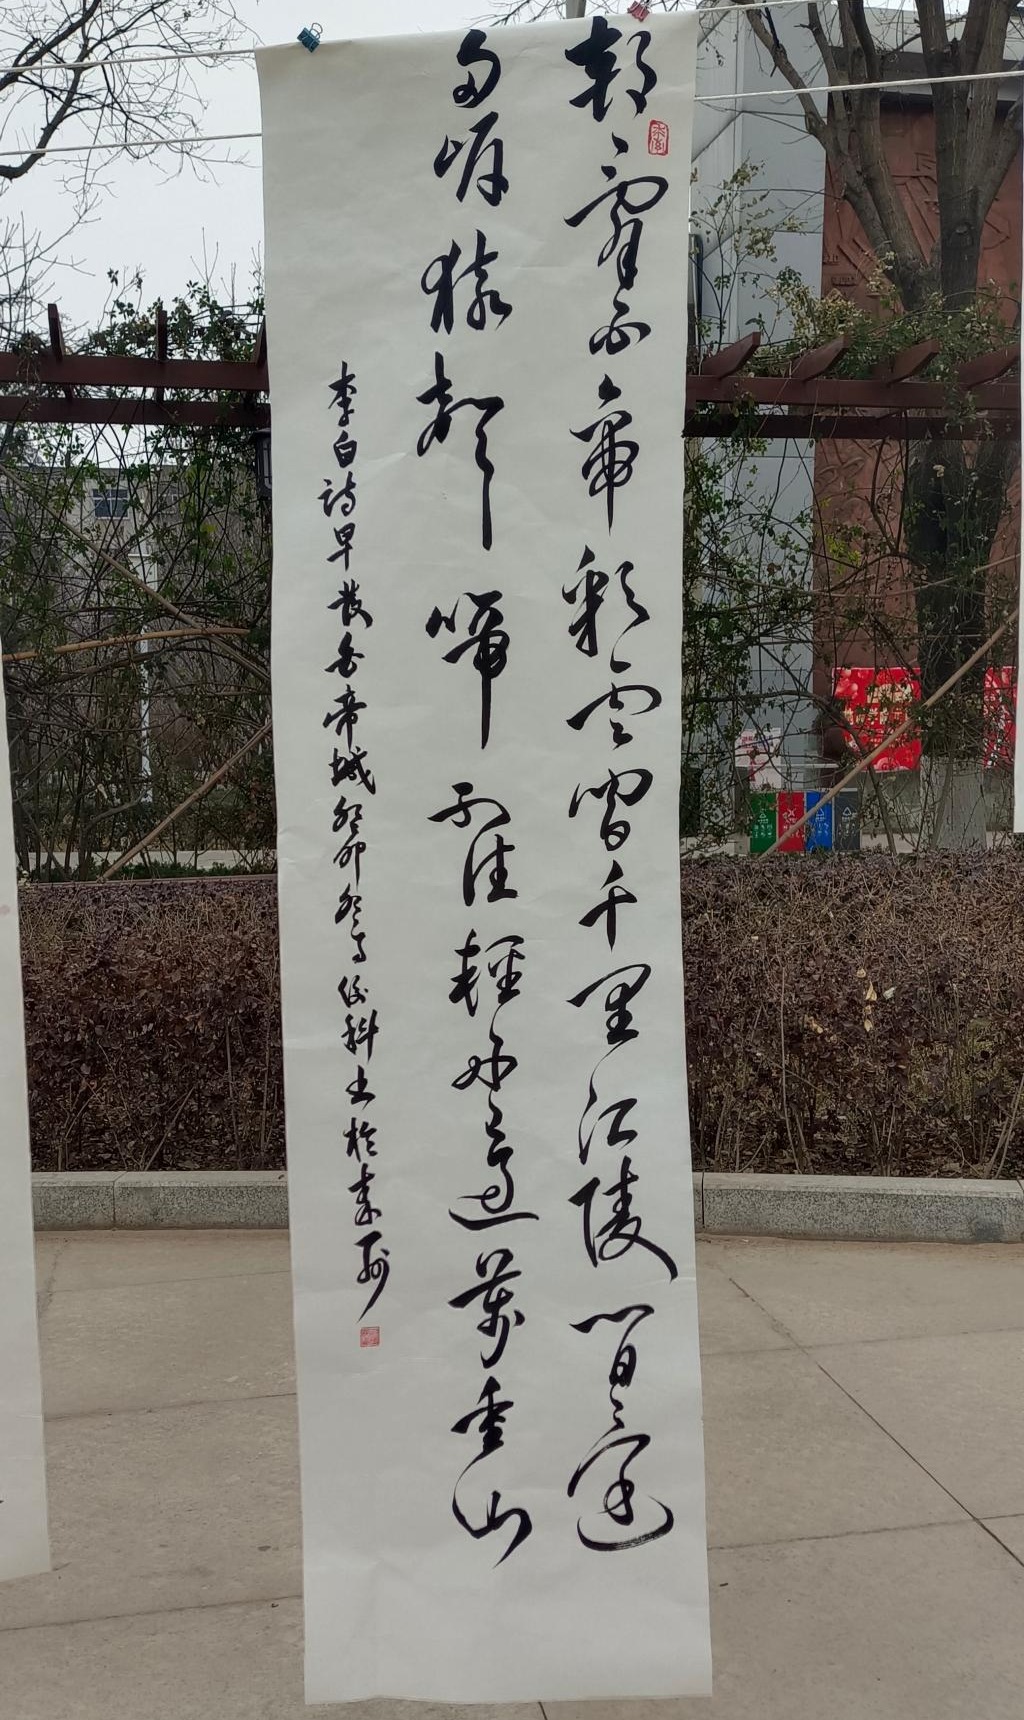 朝辭白帝彩云間千里江陵一日還
两岸猿聲啼不住輕舟已過萬重山
李白詩早發白帝城癸卯俊科书於